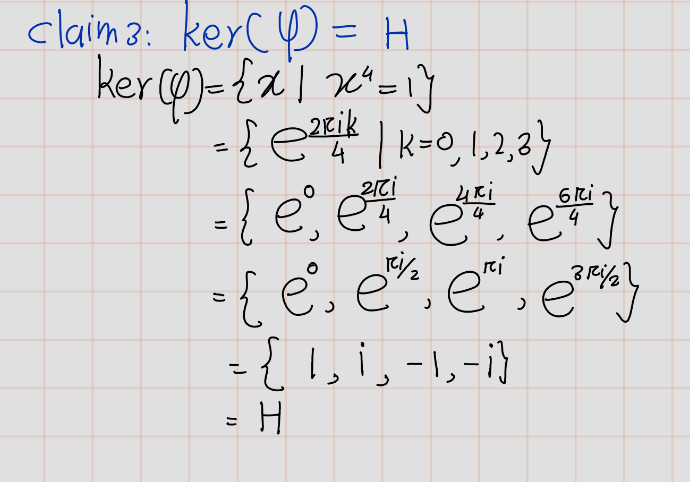 claim 3: ker(φ) = H
ker(φ) = {x | x⁴ = 1}
= { e^{2πik/4} | k=0, 1, 2, 3}
= { e^0, e^{2πi/4}, e^{4πi/4}, e^{6πi/4} }
= { e^0, e^{πi/2}, e^{πi}, e^{3πi/2} }
= { 1, i, -1, -i}
= H